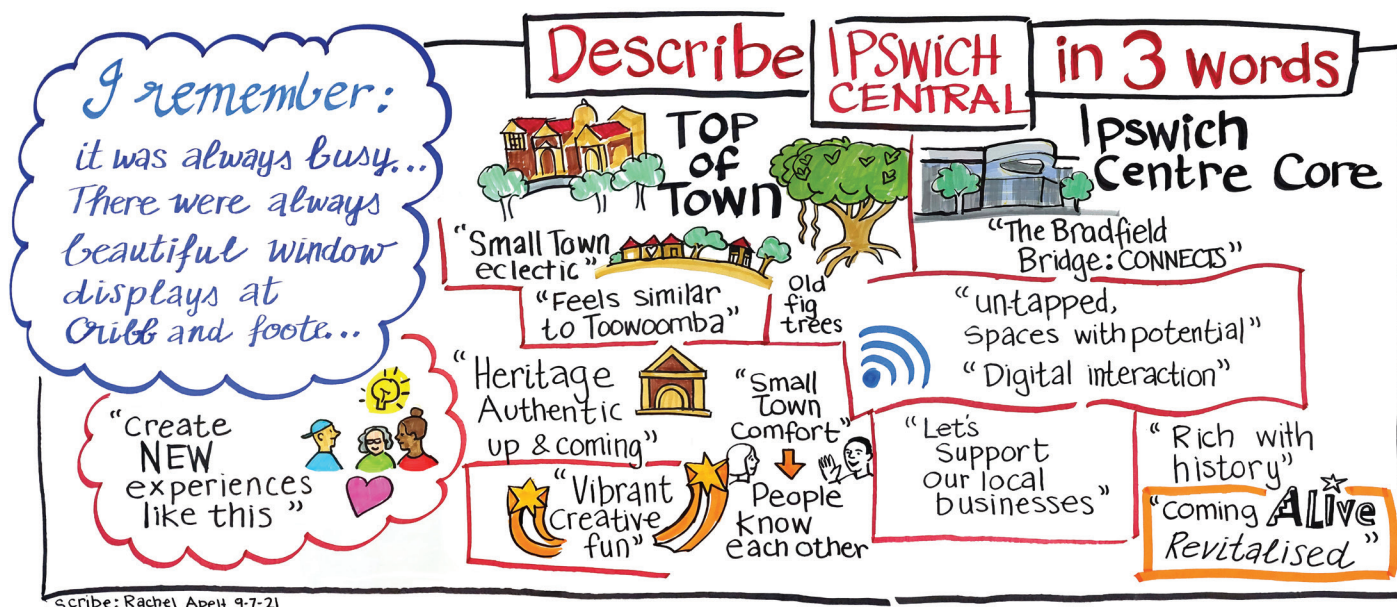 I remember:
it was always busy...
There were always
beautiful window
displays at
Cribb and foote...
"Create
NEW
experiences
like this"
Describe IPSWICH CENTRAL in 3 words
TOP
OF
TOWN
"Small Town
eclectic"
"Feels similar
to Toowoomba"
Old
fig
trees
"Heritage
Authentic
up & coming"
"Small
Town
Comfort"
People
know
each other
"Vibrant
Creative
fun"
Ipswich
Centre Core
"The Bradfield
Bridge: CONNECTS"
"un-tapped,
spaces with potential"
"Digital interaction"
"Let's
Support
our local
businesses"
"Rich with
history"
"coming ALive
Revitalised"
Scribe: Rachel Apelt 9-7-21